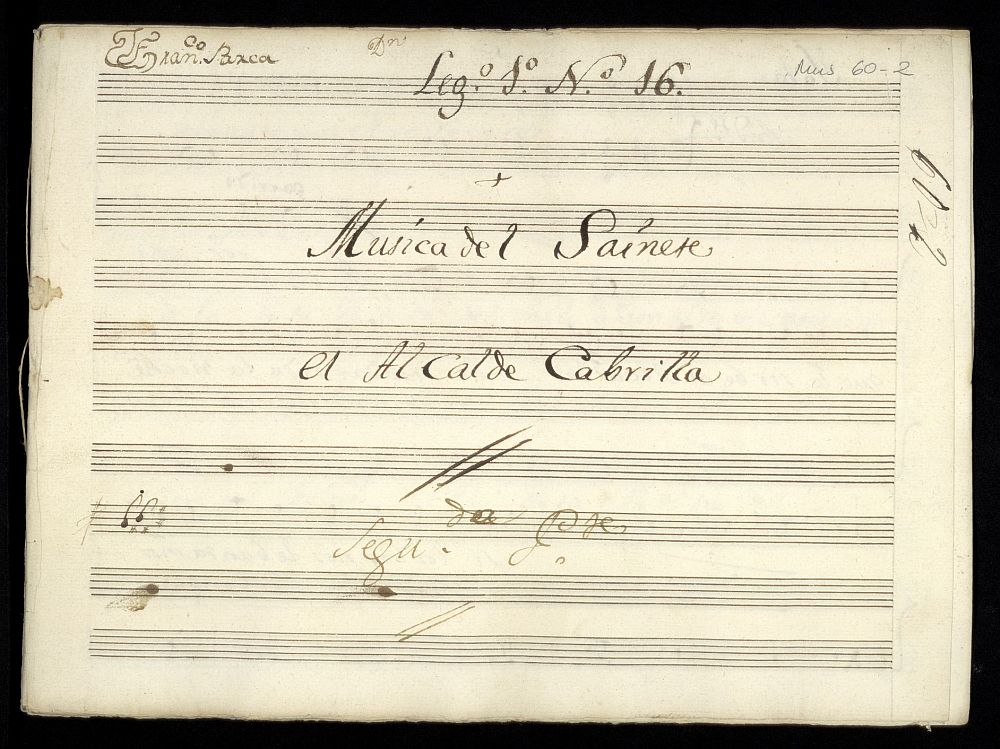 Fran.co Barca
Dn
Leg.o 1.o N.o 16.
Mus 60-2
+
Musica del Sainete
el Alcalde Cabrilla
Segu.da Pte